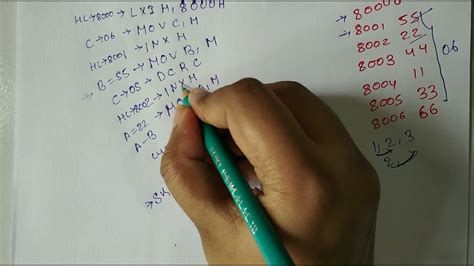 HL→8000 → LXI H, 8000H
C→06 → MOV C, M
HL→8001 → INX H
→ B=55 → MOV B, M
C→05 → DCR C
HL→8002 → INX H
A=22 →
A-B
8000
8001 55
8002 22
8003 44
8004 11
8005 33
8006 66
06
1, 2, 3
2